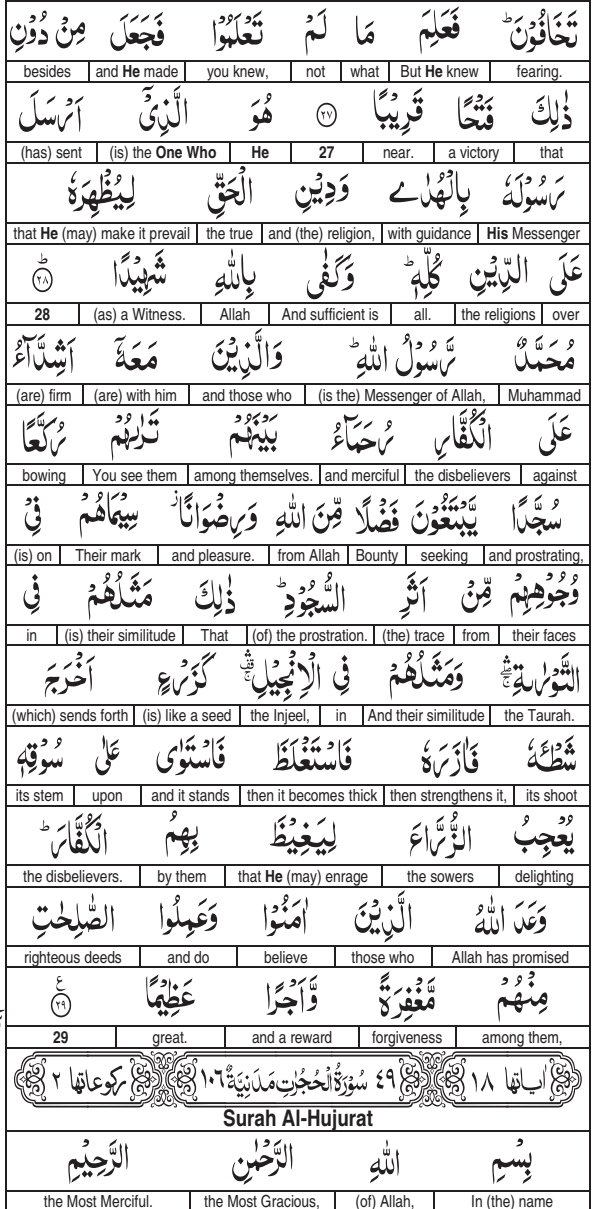 تَخَافُوْنَ ؕ فَعَلِمَ مَا لَمْ تَعْلَمُوْا فَجَعَلَ مِنْ دُوْنِ
fearing. But He knew what not you knew, and He made besides
ذٰلِكَ فَتْحًا قَرِيْبًا ﴿۲۷﴾ هُوَ الَّذِيْۤ اَرْسَلَ
that a victory near. 27 He (is) the One Who (has) sent
رَسُوْلَهٗ بِالْهُدٰى وَدِيْنِ الْحَقِّ لِيُظْهِرَهٗ
His Messenger with guidance and (the) religion, the true that He (may) make it prevail
عَلَى الدِّيْنِ كُلِّهٖ ؕ وَكَفٰى بِاللّٰهِ شَهِيْدًا ؕ ﴿۲۸﴾
over the religions all. And sufficient is Allah (as) a Witness. 28
مُحَمَّدٌ رَّسُوْلُ اللّٰهِ ؕ وَالَّذِيْنَ مَعَهٗۤ اَشِدَّآءُ
Muhammad (is the) Messenger of Allah, and those who (are) with him (are) firm
عَلَى الْكُفَّارِ رُحَمَآءُ بَيْنَهُمْ تَرٰىهُمْ رُكَّعًا
against the disbelievers and merciful among themselves. You see them bowing
سُجَّدًا يَّبْتَغُوْنَ فَضْلًا مِّنَ اللّٰهِ وَرِضْوَانًا ؗ سِيْمَاهُمْ فِيْ
and prostrating, seeking Bounty from Allah and pleasure. Their mark (is) on
وُجُوْهِهِمْ مِّنْ اَثَرِ السُّجُوْدِ ؕ ذٰلِكَ مَثَلُهُمْ فِي
their faces from (the) trace (of) the prostration. That (is) their similitude in
التَّوْرٰىةِ ۛۖۚ وَمَثَلُهُمْ فِي الْاِنْجِيْلِ ۛۚ كَزَرْعٍ اَخْرَجَ
the Taurah. And their similitude in the Injeel, (is) like a seed (which) sends forth
شَطْـَٔهٗ فَاٰزَرَهٗ فَاسْتَغْلَظَ فَاسْتَوٰى عَلٰى سُوْقِهٖ
its shoot then strengthens it, then it becomes thick and it stands upon its stem
يُعْجِبُ الزُّرَّاعَ لِيَغِيْظَ بِهِمُ الْكُفَّارَ ؕ
delighting the sowers that He (may) enrage by them the disbelievers.
وَعَدَ اللّٰهُ الَّذِيْنَ اٰمَنُوْا وَعَمِلُوا الصّٰلِحٰتِ
Allah has promised those who believe and do righteous deeds
مِنْهُمْ مَّغْفِرَةً وَّاَجْرًا عَظِيْمًا ﴿۲۹﴾ ع
among them, forgiveness and a reward great. 29
اٰيَاتُهَا ۱۸ ۴۹ سُوْرَةُ الْحُجُرٰتِ مَدَنِيَّةٌ ۱۰۶ رُكُوْعَاتُهَا ۲
Surah Al-Hujurat
بِسْمِ اللّٰهِ الرَّحْمٰنِ الرَّحِيْمِ
In (the) name (of) Allah, the Most Gracious, the Most Merciful.